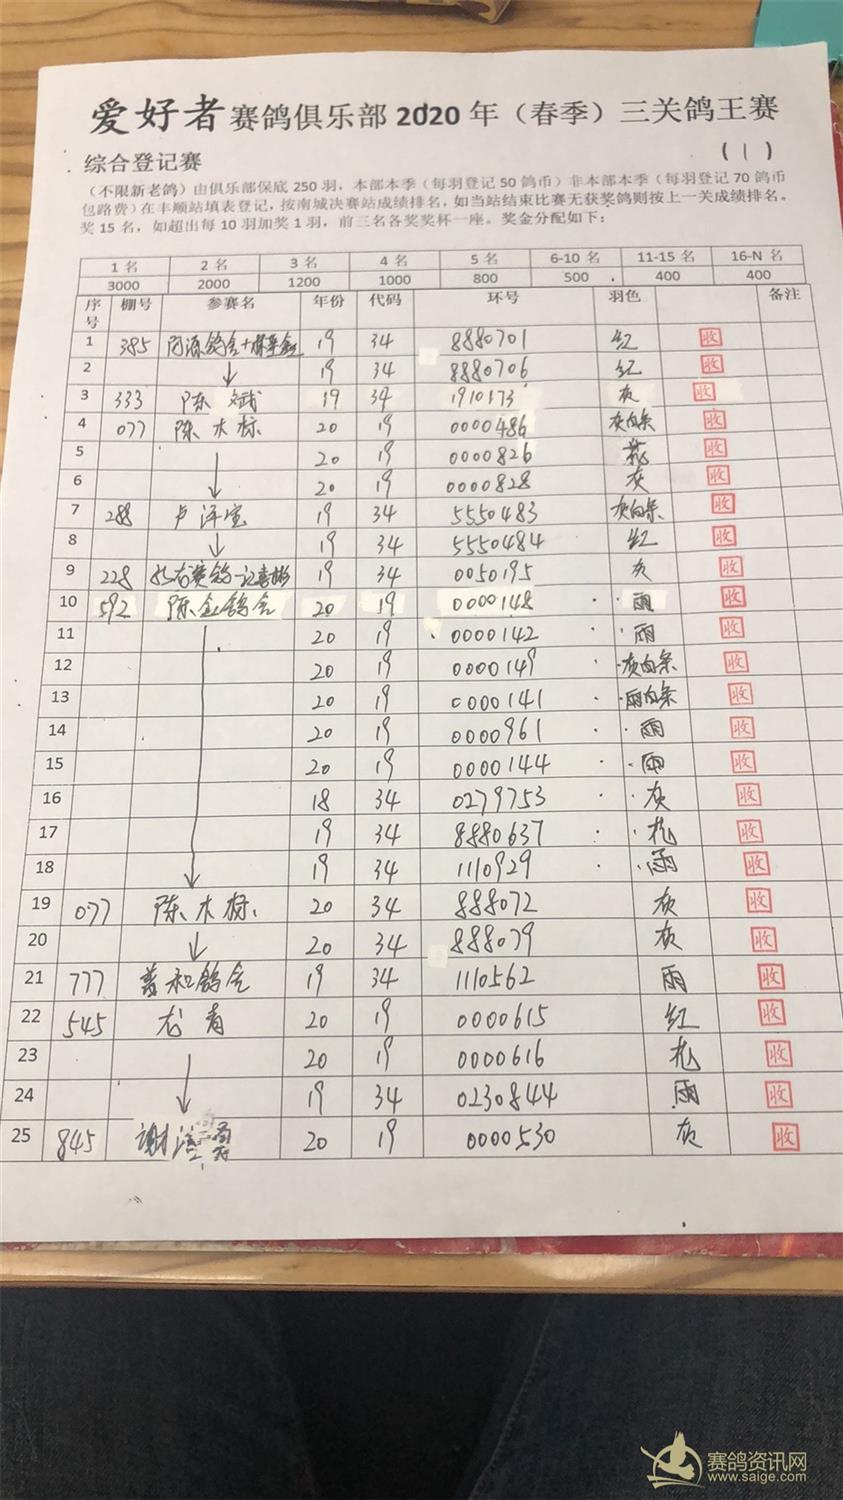 爱好者赛鸽俱乐部2020年（春季）三关鸽王赛
综合登记赛
（1）
（不限新老鸽）由俱乐部保底250羽，本部本季（每羽登记50鸽币）非本部本季（每羽登记70鸽币
包路费）在丰顺站填表登记，按南城决赛站成绩排名，如当站结束比赛无获奖鸽则按上一关成绩排名。
奖15名，如超出每10羽加奖1羽，前三名各奖奖杯一座。奖金分配如下：
1名 2名 3名 4名 5名 6-10名 11-15名 16-N名
3000 2000 1200 1000 800 500 400 400
序号 棚号 参赛名 年份 代码 环号 羽色 备注
1 385 19 34 8880701 红 收
2 19 34 8880706 红 收
3 333 陈斌 19 34 1910173 灰 收
4 077 陈木标 20 19 0000486 灰白条 收
5 20 19 0000826 花 收
6 20 19 0000828 灰 收
7 288 卢泽宝 19 34 5550483 灰白条 收
8 19 34 5550484 红 收
9 228 19 34 0050195 灰 收
10 592 陈金鸽舍 20 19 0000148 雨 收
11 20 19 0000142 雨 收
12 20 19 0000149 灰白条 收
13 20 19 0000141 雨白条 收
14 20 19 0000961 雨 收
15 20 19 0000144 雨 收
16 18 34 0279753 灰 收
17 19 34 8880637 花 收
18 19 34 1110929 雨 收
19 077 陈木标 20 34 888072 灰 收
20 20 34 888079 灰 收
21 777 善和鸽舍 19 34 1110562 雨 收
22 545 龙青 20 19 0000615 红 收
23 20 19 0000616 花 收
24 19 34 0230844 雨 收
25 845 谢 20 19 0000530 灰 收
赛鸽资讯网
www.saige.com